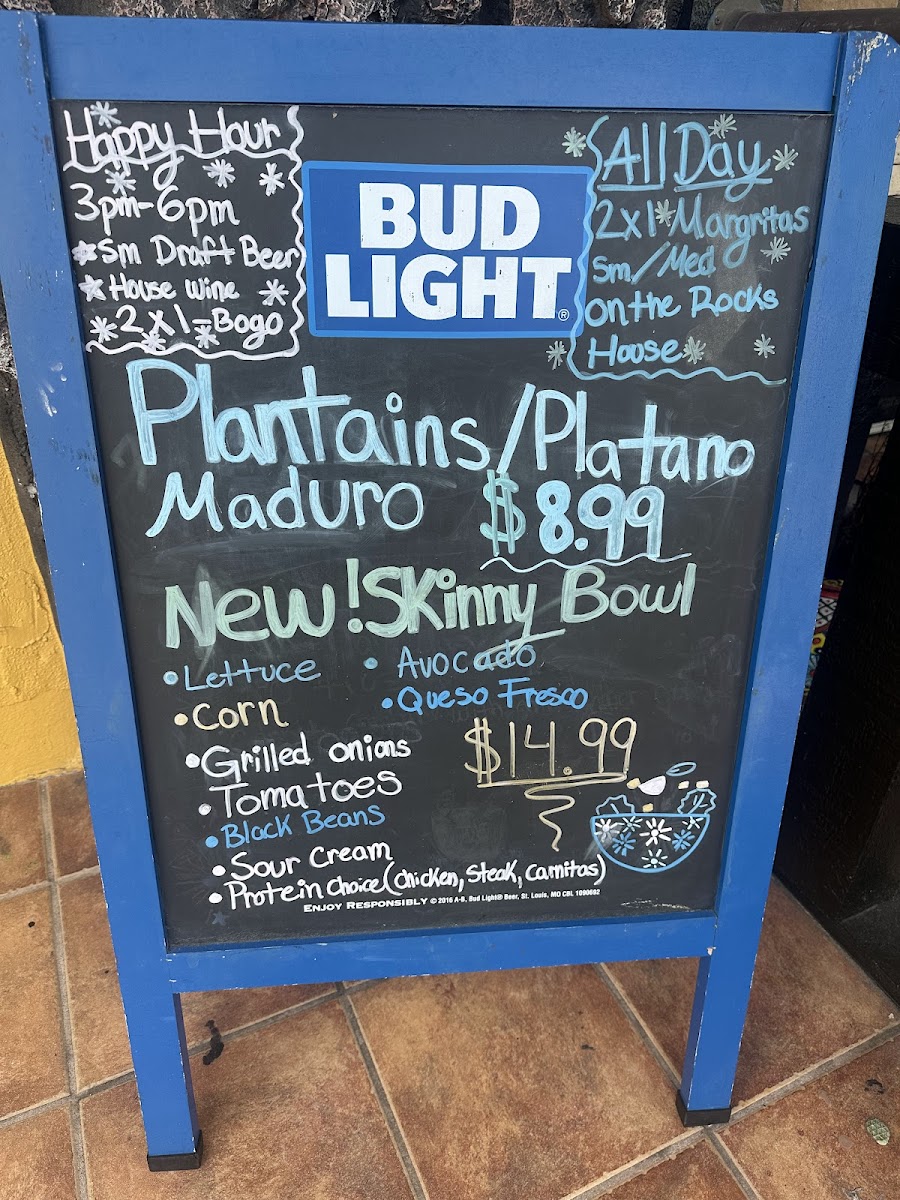 Happy Hour
3pm-6pm
*Sm Draft Beer
*House wine
2X1=Bogo
BUD
LIGHT®
All Day
2x1 Margritas
sm/Med
on the Rocks
House
Plantains/Platano
Maduro $8.99
New! Skinny Bowl
• Lettuce
• Corn
• Grilled onions
• Tomatoes
• Black Beans
• Sour Cream
• Protein choice (chicken, steak, carnitas)
• Avocado
• Queso Fresco
$14.99
ENJOY RESPONSIBLY © 2016 A-B, Bud Light® Beer, St. Louis, MO CBL 1090692